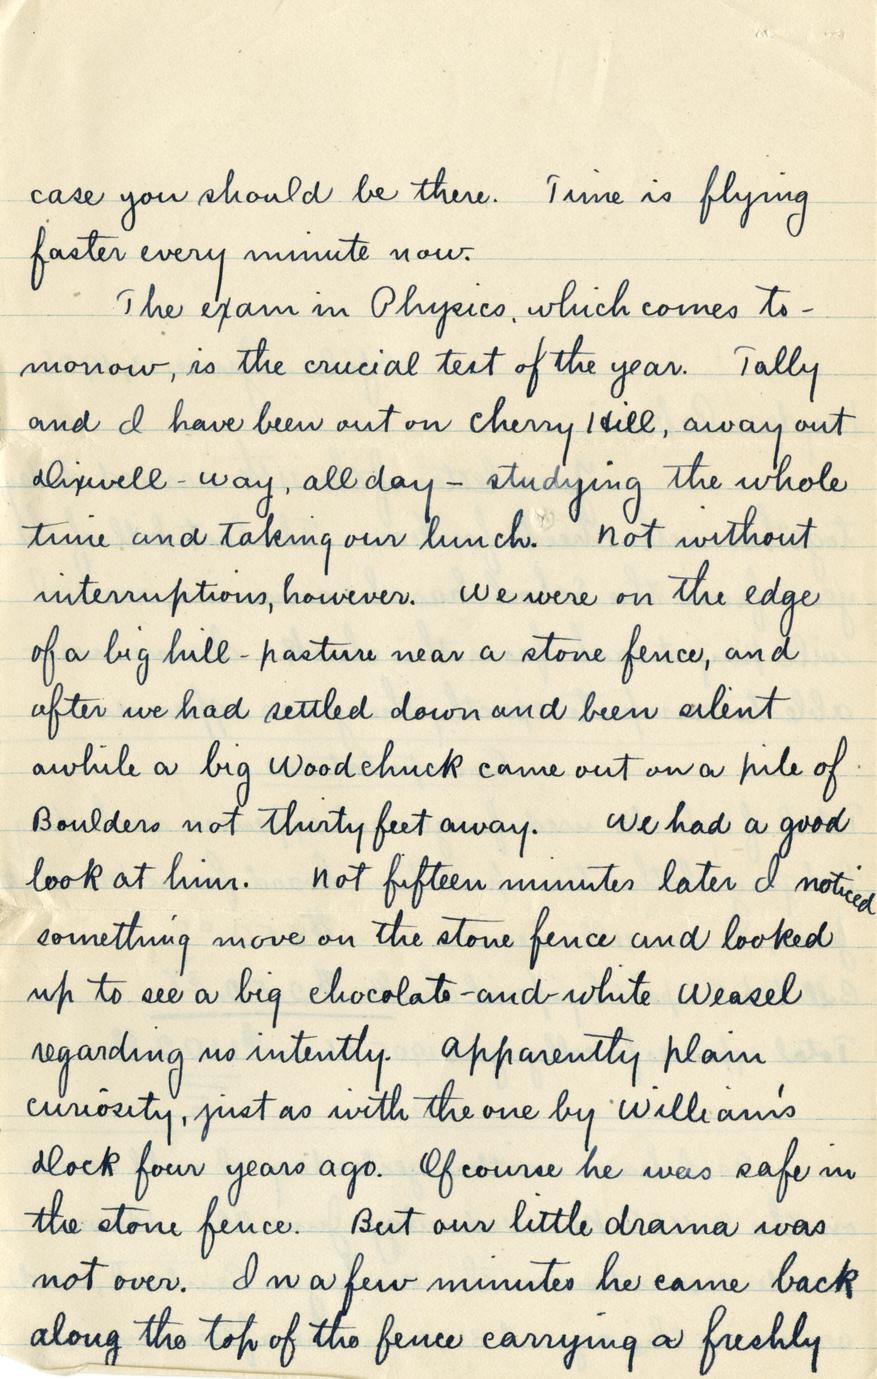 case you should be there. Time is flying
faster every minute now.
The exam in Physics, which comes to-
morrow, is the crucial test of the year. Tally
and I have been out on Cherry Hill, away out
Dixwell-way, all day - studying the whole
time and taking our lunch. Not without
interruptions, however. We were on the edge
of a big hill-pasture near a stone fence, and
after we had settled down and been silent
awhile a big Woodchuck came out on a pile of
Boulders not thirty feet away. We had a good
look at him. Not fifteen minutes later I noticed
something move on the stone fence and looked
up to see a big chocolate-and-white Weasel
regarding us intently. Apparently plain
curiosity, just as with the one by William's
Dock four years ago. Of course he was safe in
the stone fence. But our little drama was
not over. In a few minutes he came back
along the top of the fence carrying a freshly